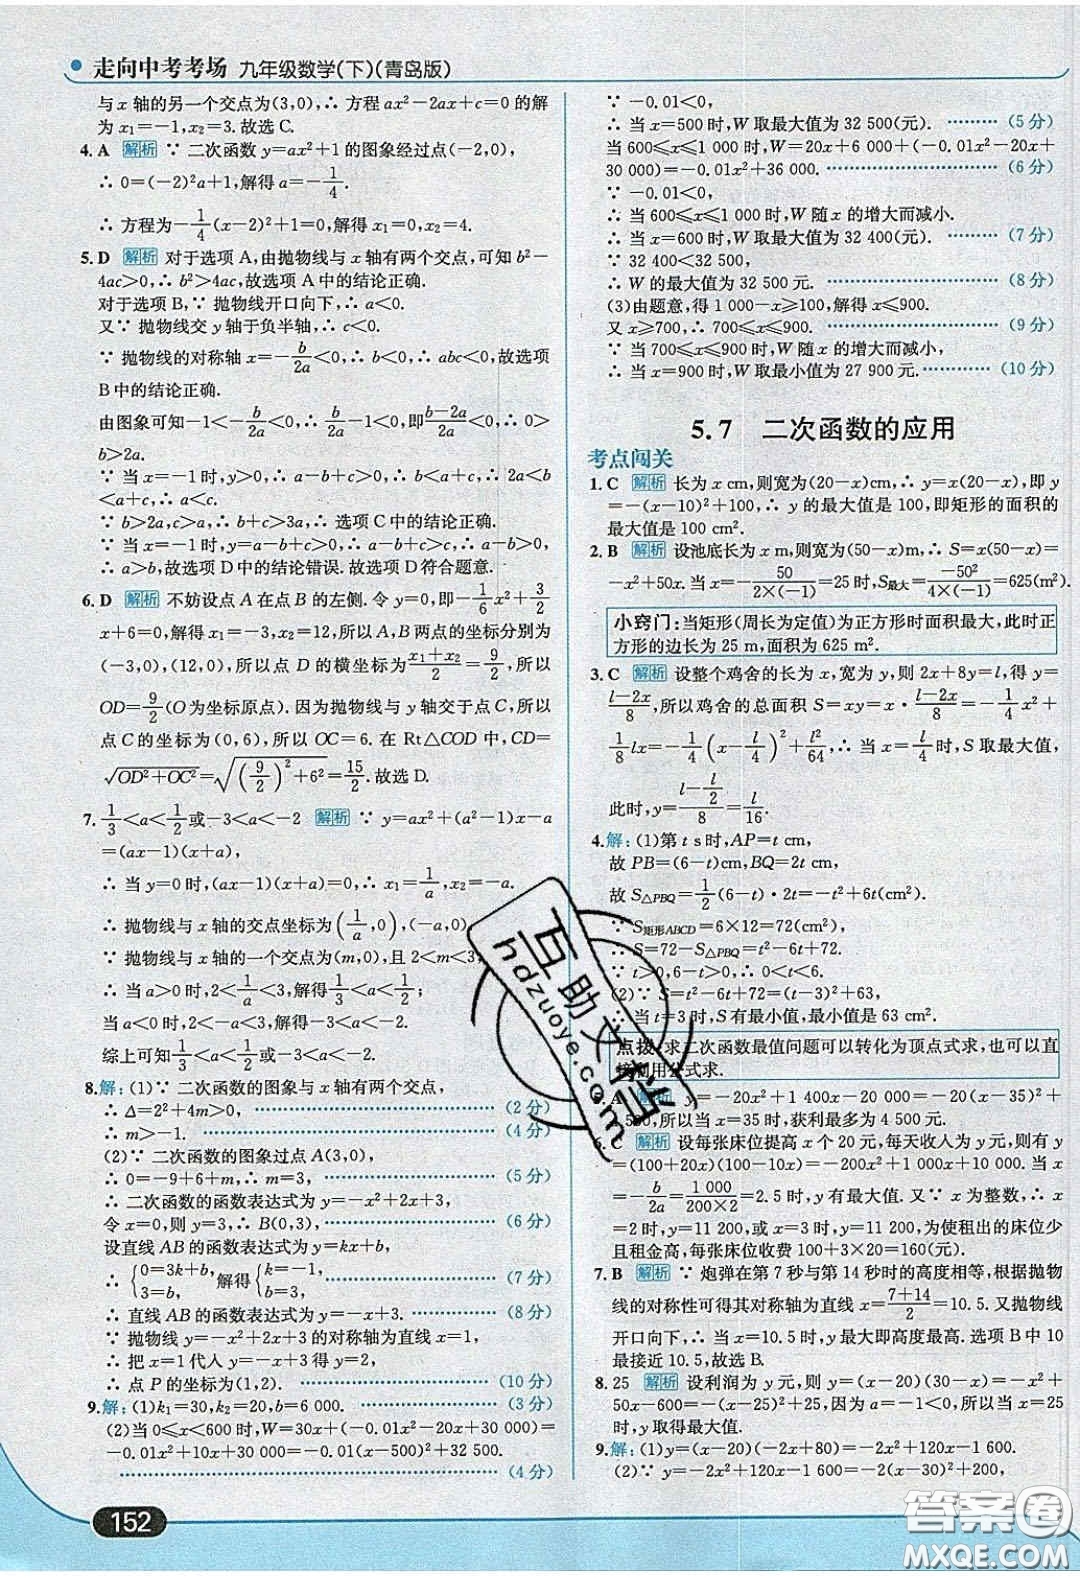 走向中考考场 九年级数学(下)(青岛版)
与x轴的另一个交点为(3,0),∴ 方程ax²-2ax+c=0的解
为x₁=-1,x₂=3.故选C.
4. A 解析 ∵ 二次函数y=ax²+1的图象经过点(-2,0),
∴ 0=(-2)²a+1,解得a=-1/4.
∴ 方程为-1/4(x-2)²+1=0,解得x₁=0,x₂=4.
5. D 解析 对于选项A,由抛物线与x轴有两个交点,可知b²-
4ac>0,∴ b²>4ac,故选项A中的结论正确.
对于选项B,∵ 抛物线开口向下,∴ a<0.
又∵ 抛物线交y轴于负半轴,∴ c<0.
∵ 抛物线的对称轴x=-b/2a<0,∴ b<0,∴ abc<0,故选项
B中的结论正确.
由图象可知-1<-b/2a<0,∴ b/2a-1<0,即(b-2a)/2a<0,∴ 0>
b>2a.
∵ 当x=-1时,y<0,∴ a-b+c>0,∴ a-b+c<0,∴ 2a-b
<a+c,∴ a<c.
∵ b>2a,c>a,∴ b+c>3a,∴ 选项C中的结论正确.
∵ 当x=-1时,y>0,∴ a-b+c>0,∴ a-b>-c>0,
∴ a>b,故选项D中的结论错误.故选项D符合题意.
6. D 解析 不妨设点A在点B的左侧.令y=0,即-1/6x²+3/2
x+6=0,解得x₁=-3,x₂=12,所以A,B两点的坐标分别为
(-3,0),(12,0),所以点D的横坐标为(x₁+x₂)/2=9/2,所以
OD=9/2(O为坐标原点).因为抛物线与y轴交于点C,所以
点C的坐标为(0,6),所以OC=6.在Rt△COD中,CD=
√(OD²+OC²)=√((9/2)²+6²)=15/2.故选D.
7. 1/3<a<1/2或-3<a<-2 解析 ∵ y=ax²+(a²-1)x-a
=(ax-1)(x+a),
∴ 当y=0时,(ax-1)(x+a)=0,∴ x₁=1/a,x₂=-a.
∴ 抛物线与x轴的交点坐标为(1/a,0),(-a,0).
∵ 抛物线与x轴的一个交点为(m,0),且2<m<3,
∴ 当a>0时,2<1/a<3,解得1/3<a<1/2;
当a<0时,2<-a<3,解得-3<a<-2.
综上可知1/3<a<1/2或-3<a<-2.
8.解:(1)∵ 二次函数的图象与x轴有两个交点,
∴ Δ=2²+4m>0, …… (2分)
∴ m>-1. …… (4分)
(2)∵ 二次函数的图象过点A(3,0),
∴ 0=-9+6+m,∴ m=3, …… (5分)
∴ 二次函数的函数表达式为y=-x²+2x+3,
令x=0,则y=3,∴ B(0,3), …… (6分)
设直线AB的函数表达式为y=kx+b,
∴ {0=3k+b, 3=b, 解得{k=-1, b=3, …… (7分)
∴ 直线AB的函数表达式为y=-x+3. …… (8分)
∵ 抛物线y=-x²+2x+3的对称轴为直线x=1,
∴ 把x=1代入y=-x+3得y=2,
∴ 点P的坐标为(1,2). …… (10分)
9.解:(1)k₁=30,k₂=20,b=6 000. …… (3分)
(2)当0≤x<600时,W=30x+(-0.01x²-20x+30 000)=
-0.01x²+10x+30 000=-0.01(x-500)²+32 500.
…… (4分)
∵ -0.01<0,
∴ 当x=500时,W取最大值为32 500(元). …… (5分)
当600≤x≤1 000时,W=20x+6 000+(-0.01x²-20x+
30 000)=-0.01x²+36 000. …… (6分)
∵ -0.01<0,
∴ 当600≤x≤1 000时,W随x的增大而减小.
∴ 当x=600时,W取最大值为32 400(元). …… (7分)
∵ 32 400<32 500,
∴ W的最大值为32 500元. …… (8分)
(3)由题意,得1 000-x≥100,解得x≤900.
又x≥700,∴ 700≤x≤900. …… (9分)
∵ 当700≤x≤900时,W随x的增大而减小,
∴ 当x=900时,W取最小值为27 900元. …… (10分)
5.7 二次函数的应用
考点闯关
1. C 解析 长为x cm,则宽为(20-x)cm,∴ y=x(20-x),即y
=-(x-10)²+100,∴ y的最大值是100,即矩形的面积的
最大值是100 cm².
2. B 解析 设池底长为x m,则宽为(50-x)m,∴ S=x(50-x)=
-x²+50x.当x=-50/(2×(-1))=25时,S最大=-50²/(4×(-1))=625(m²).
小窍门:当矩形(周长为定值)为正方形时面积最大,此时正
方形的边长为25 m,面积为625 m².
3. C 解析 设整个鸡舍的长为x,宽为y,则2x+8y=l,得y=
(l-2x)/8,所以鸡舍的总面积S=xy=x·(l-2x)/8=-1/4x²+
1/8lx=-1/4(x-l/4)²+l²/64,∴ 当x=l/4时,S取最大值,
此时,y=(l-l/2)/8=l/16.
4.解:(1)第t s时,AP=t cm,
故PB=(6-t)cm,BQ=2t cm,
故S△PBQ=1/2(6-t)·2t=-t²+6t(cm²).
∵ S矩形ABCD=6×12=72(cm²),
∴ S=72-S△PBQ=t²-6t+72.
∵ t>0,6-t>0,∴ 0<t<6.
(2)∵ S=t²-6t+72=(t-3)²+63,
∴ 当t=3时,S有最小值,最小值是63 cm².
点拨:求二次函数最值问题可以转化为顶点式求,也可以直
接利用公式求.
5. A 解析 y=-20x²+1 400x-20 000=-20(x-35)²+
4 500,所以当x=35时,获利最多为4 500元.
6. C 解析 设每张床位提高x个20元,每天收入为y元,则有y
=(100+20x)(100-10x)=-200x²+1 000x+10 000.当x
=-b/2a=1 000/(200×2)=2.5时,y有最大值.又∵ x为整数,∴ x=
2时,y=11 200,或x=3时,y=11 200,为使租出的床位少
且租金高,每张床位收费100+3×20=160(元).
7. B 解析 ∵ 炮弹在第7秒与第14秒时的高度相等,根据抛物
线的对称性可得其对称轴为直线x=(7+14)/2=10.5.又抛物线
开口向下,∴ 当x=10.5时,y最大即高度最高.选项B中10
最接近10.5,故选B.
8. 25 解析 设利润为y元,则y=(x-20)(30-x)=-x²+
50x-600=-(x-25)²+25,因为a=-1<0,所以当x=25
时,y取得最大值.
9.解:(1)y=(x-20)(-2x+80)=-2x²+120x-1 600.
(2)∵ y=-2x²+120x-1 600,
152
互助文档
hdzuoye.com
答案圈
MXQE.COM